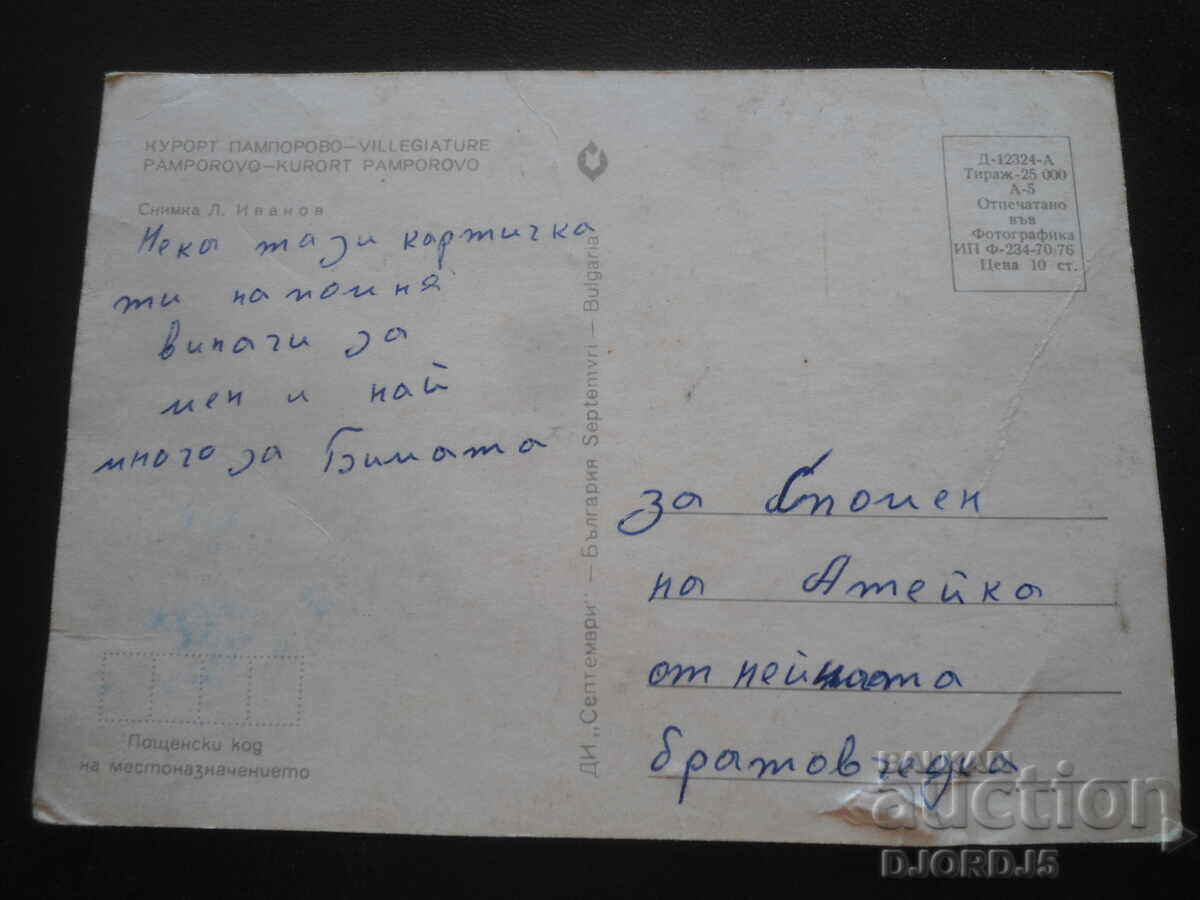 КУРОРТ ПАМПОРОВО—VILLEGIATURE
PAMPOROVO—KURORT PAMPOROVO
Снимка Л. Иванов
Нека тази картичка
ти напомня
винаги за
мен и най
много за Бимата
ДИ „Септември" — България Septemvri — Bulgaria
Д-12324-А
Тираж-25 000
А-5
Отпечатано
във
Фотографика
ИП Ф-234-70/76
Цена 10 ст.
за спомен
на Атейка
от нейната
братовчедка
Пощенски код
на местоназначението
BALKAN
auction
DJORDJ5